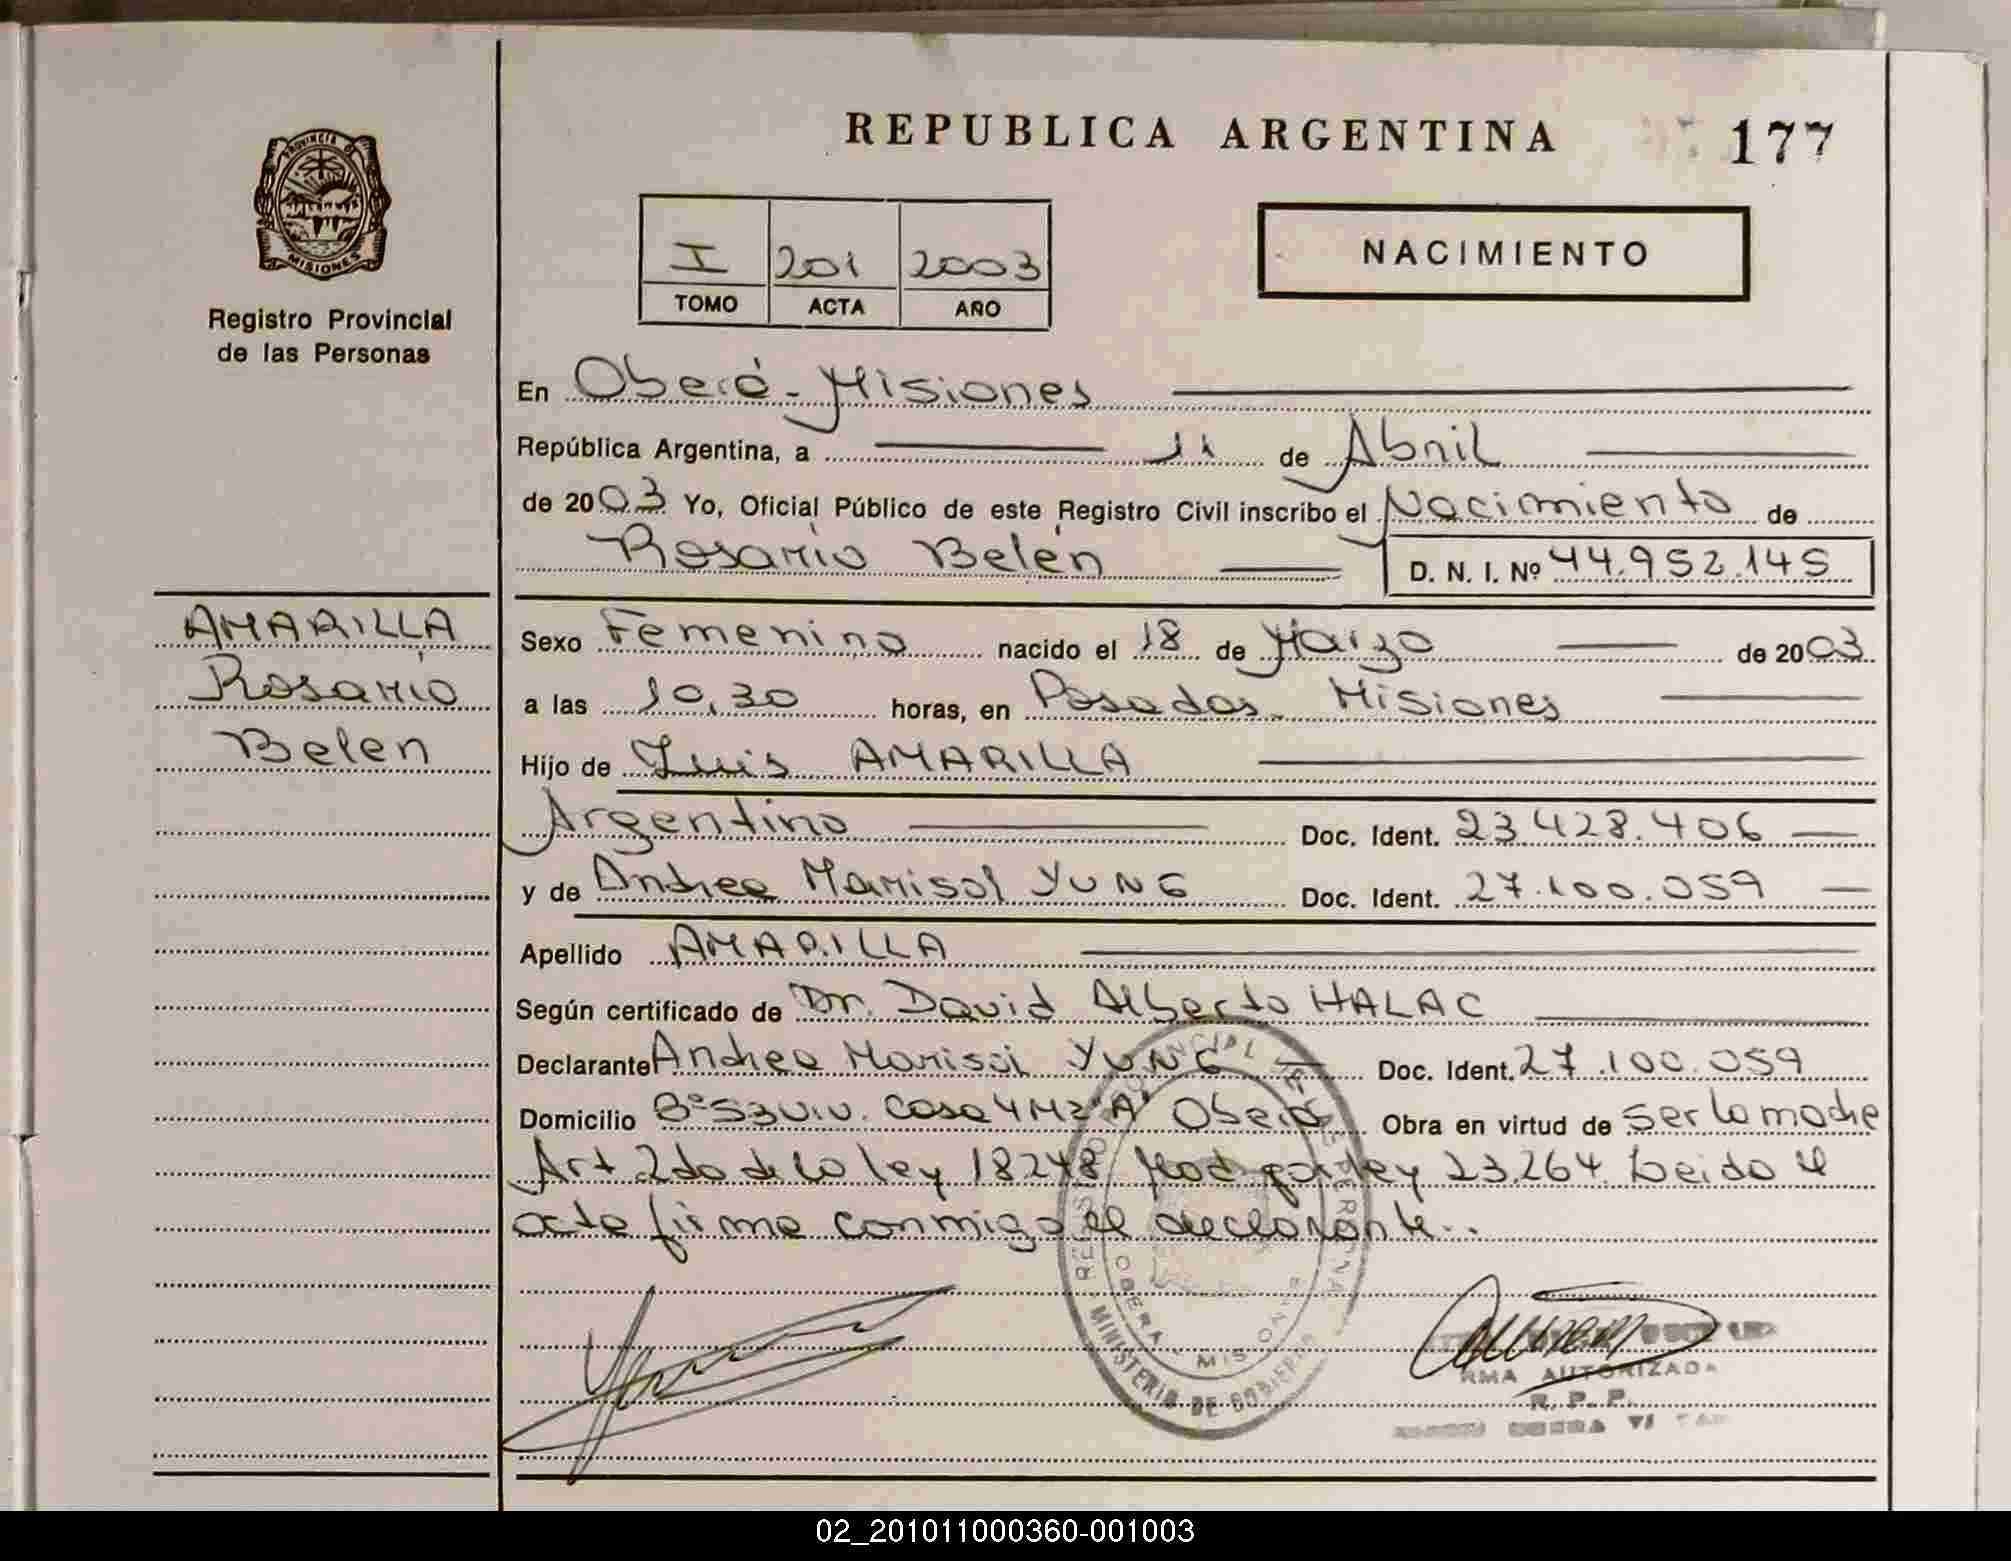 REPUBLICA ARGENTINA
177
PROVINCIA DE
MISIONES
Registro Provincial
de las Personas
I 201 2003
TOMO ACTA AÑO
NACIMIENTO
En Oberá - Misiones
República Argentina, a 11 de Abril
de 2003 Yo, Oficial Público de este Registro Civil inscribo el Nacimiento de
Rosario Belén D. N. I. Nº 44.952.145
AMARILLA
Rosario
Belen
Sexo Femenino nacido el 18 de Marzo de 2003
a las 10,30 horas, en Posadas - Misiones
Hijo de Luis AMARILLA
Argentino Doc. Ident. 23.428.406
y de Andrea Marisol YUNG Doc. Ident. 27.100.059
Apellido AMARILLA
Según certificado de Dr. David Alberto HALAC
Declarante Andrea Marisol YUNG Doc. Ident. 27.100.059
Domicilio Bº 53 Viv. Casa 4 Mz "A" Oberá Obra en virtud de ser la madre
Art 2do de la ley 18248 Mod por ley 23.264. Leido el
acta firma conmigo el declarante..
REGISTRO PROVINCIAL DE LAS PERSONAS
OBERA - MISIONES
MINISTERIO DE GOBIERNO
RMA AUTORIZADA
R. P. P.
02_201011000360-001003